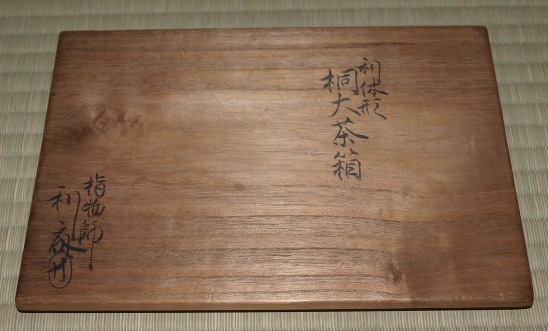 利休形
桐大茶箱
指物師
利